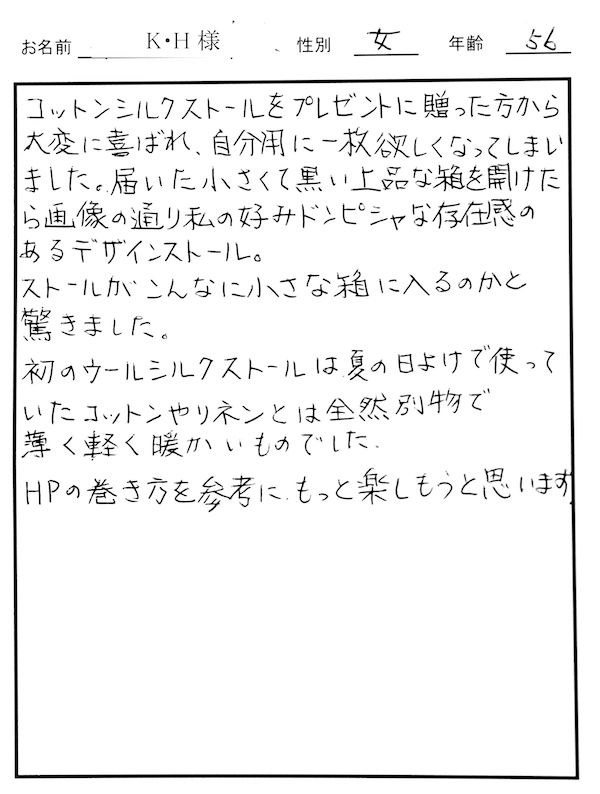 お名前 K・H 様 性別 女 年齢 56
コットンシルクストールをプレゼントに贈った方から
大変に喜ばれ、自分用に一枚欲しくなってしまい
ました。届いた小さくて黒い上品な箱を開けた
ら画像の通り私の好みドンピシャな存在感の
あるデザインストール。
ストールがこんなに小さな箱に入るのかと
驚きました。
初のウールシルクストールは夏の日よけで使って
いたコットンやリネンとは全然別物で
薄く軽く暖かいものでした.
HPの巻き方を参考に、もっと楽しもうと思います